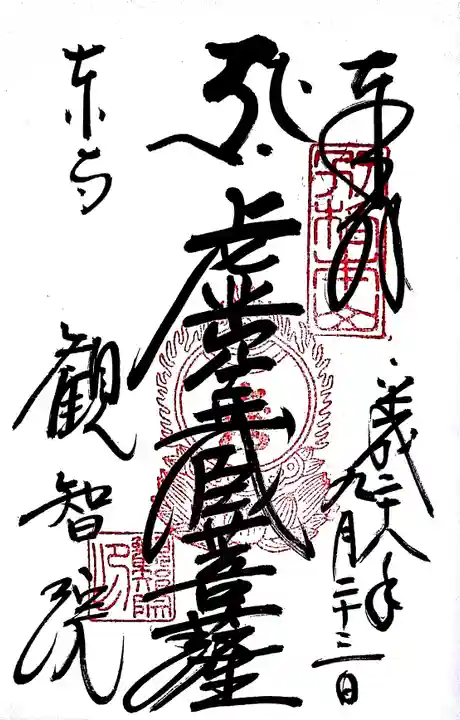 奉拝
平成二十八年
九月二十三日
虚空蔵菩薩
東寺
観智院